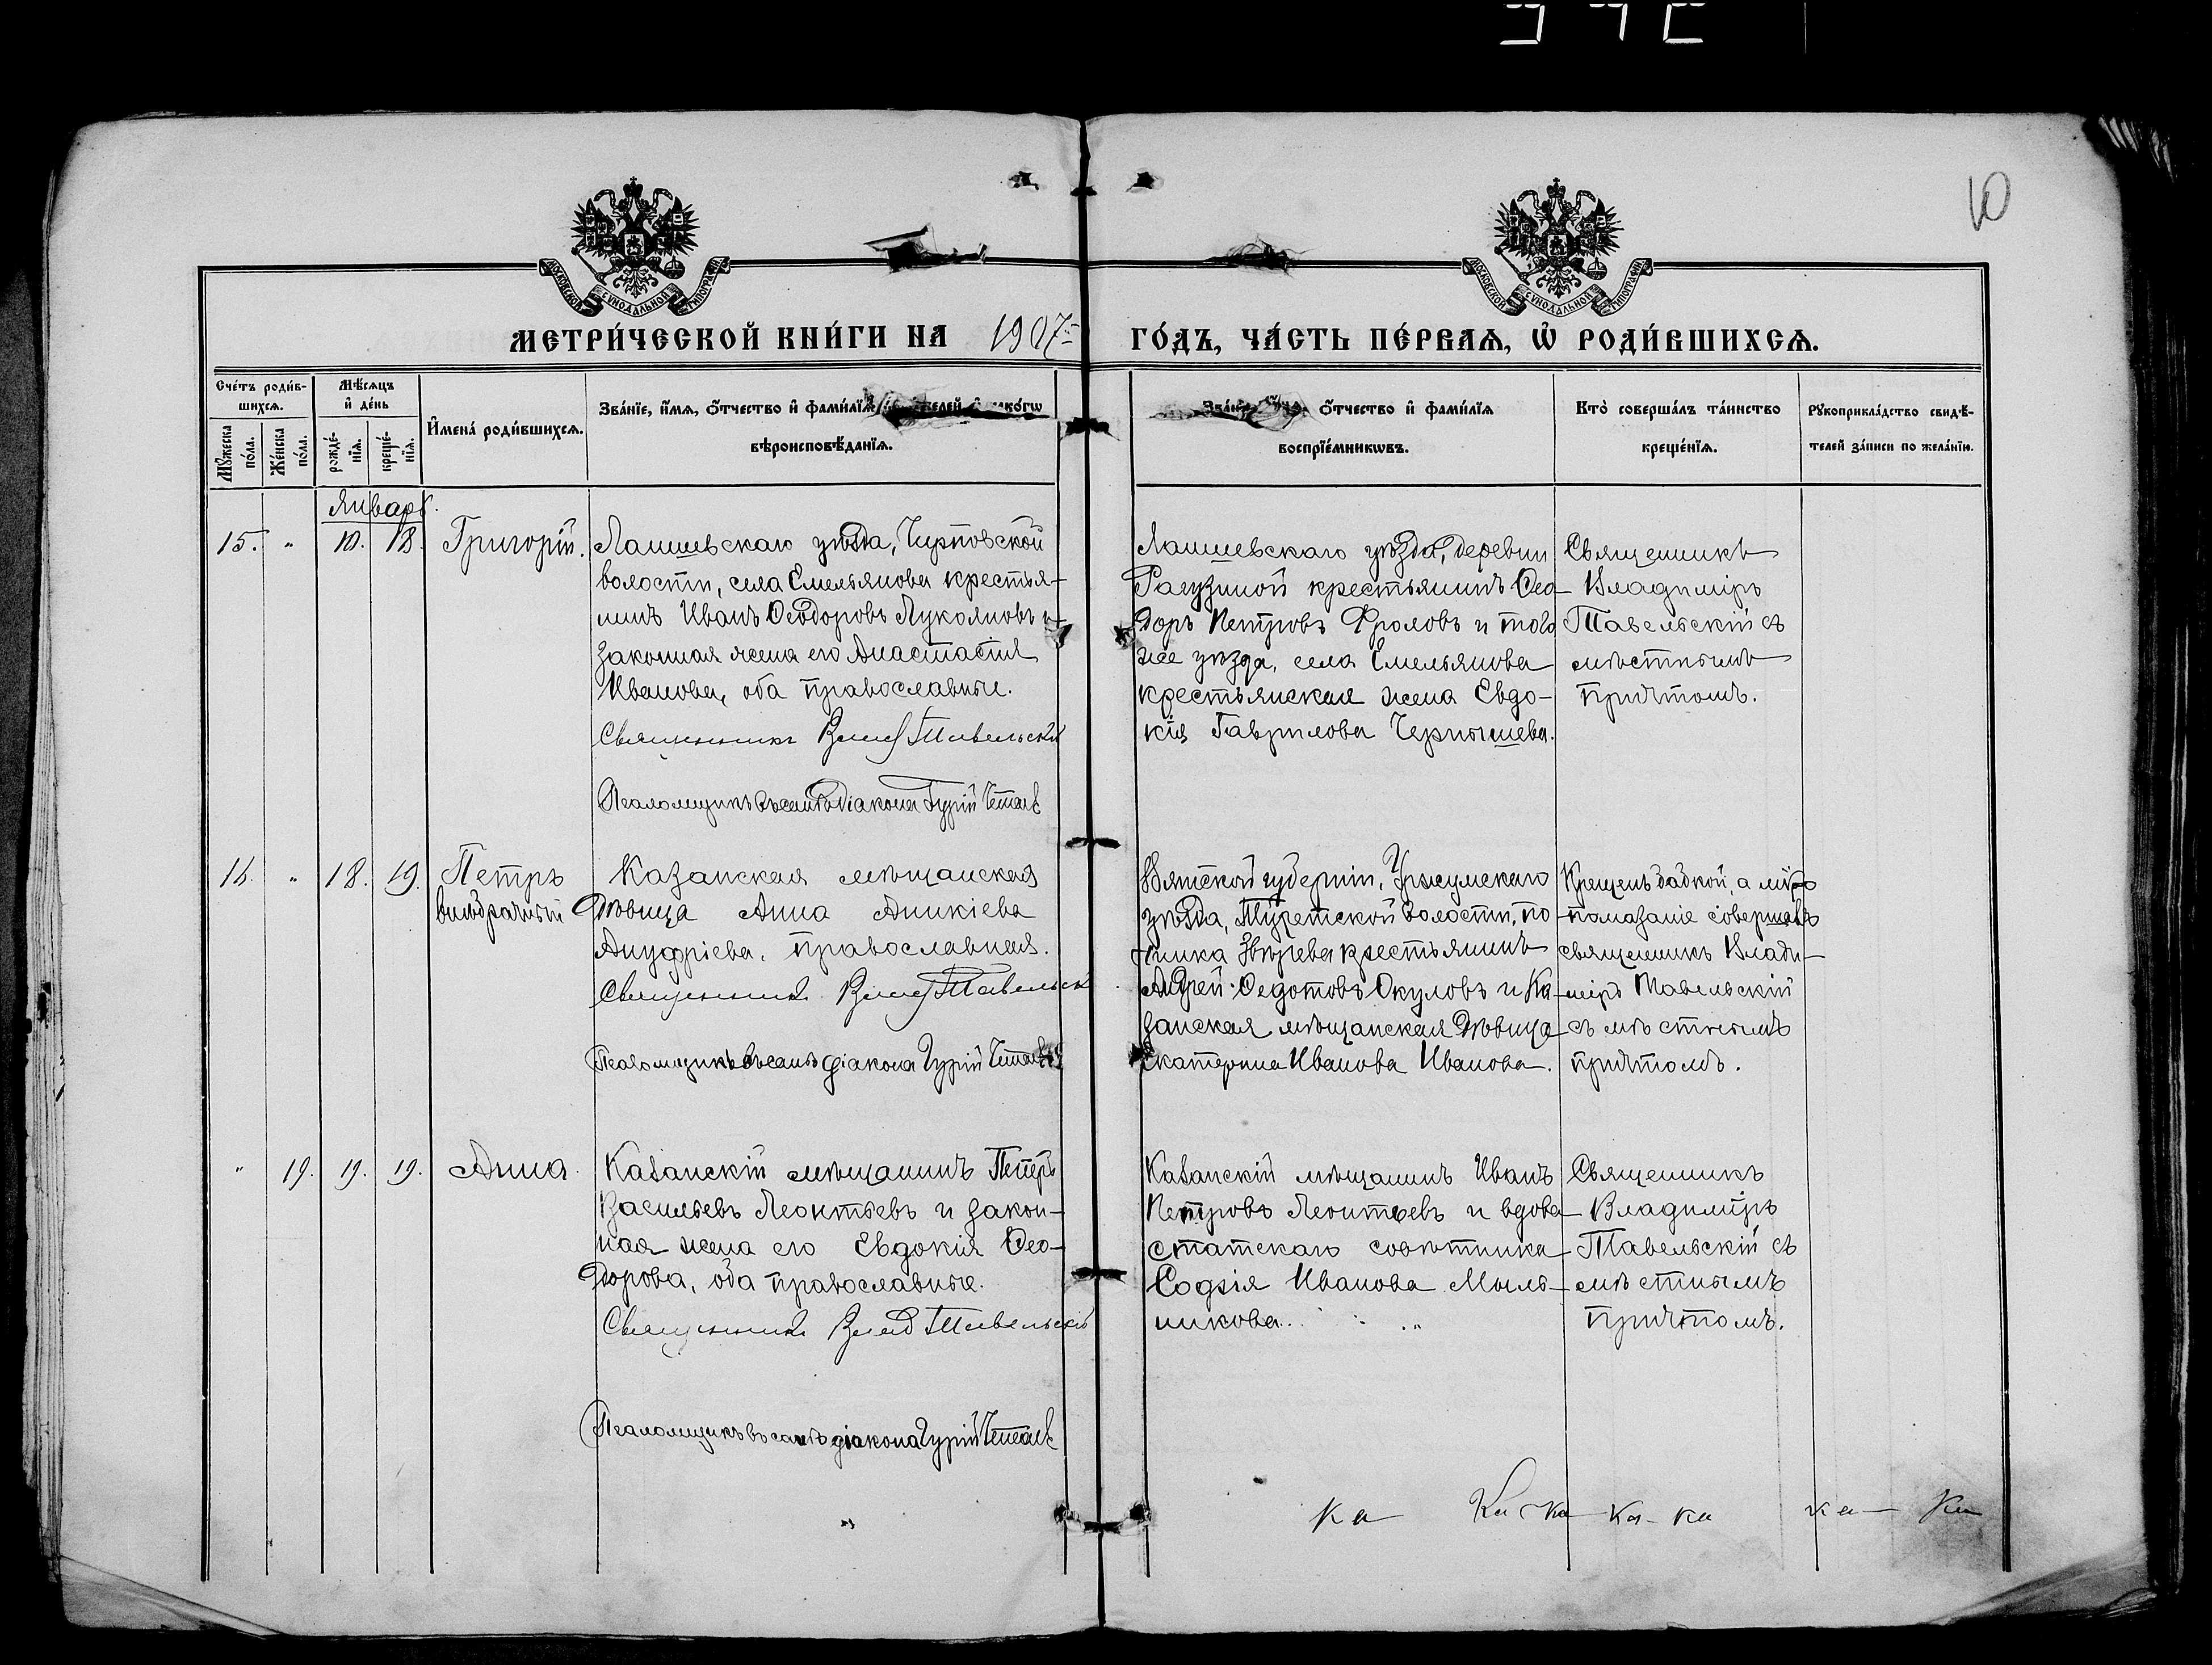 10
МОСКОВСКОЙ СѴНОДАЛЬНОЙ ТИПОГРАФІИ
МОСКОВСКОЙ СѴНОДАЛЬНОЙ ТИПОГРАФІИ
МЕТРИ́ЧЕСКОЙ КНИ́ГИ НА 1907 ГО́ДЪ, ЧА́СТЬ ПЕ́РВАѦ, Ѡ҆ РОДИ́ВШИХСѦ.
Сче́тъ роди́в-
шихсѧ.
Мꙋ́жеска по́ла.
Же́нска по́ла.
Мѣ́сѧцъ
и҆ де́нь
рожде́-
нїѧ.
креще́-
нїѧ.
И҆мена̀ роди́вшихсѧ.
Зва́нїе, и҆́мѧ, ѻ҆́тчество и҆ фами́лїѧ
вѣроисповѣ́данїѧ.
Зва́нїе, ѻ҆́тчество и҆ фами́лїѧ
воспрїе́мникѡвъ.
Кто̀ соверша́лъ та́инство
креще́нїѧ.
Рꙋкоприкла́дство свидѣ́-
телей за́писи по жела́нїю.
Январь.
15. " 10. 18. Григорій.
Лаишевскаго уѣзда, Чирповской
волости, села Емельянова крестья-
нинъ Иванъ Ѳеодоровъ Лукояновъ и
законная жена его Анастасія
Иванова, оба православные.
Священникъ Влад Тавельскій
Псаломщикъ въ санѣ діакона Гурій
Лаишевскаго уѣзда, деревни
Рагузиной крестьянинъ Ѳео-
доръ Петровъ Фроловъ и того
же уѣзда, села Емельянова
крестьянская жена Евдо-
кія Гаврилова Чернышева.
Священникъ
Владиміръ
Тавельскій съ
мѣстнымъ
причтомъ.
16. " 18. 19. Петръ
внѣбрачный
Казанская мѣщанская
дѣвица Анна Аникіева
Ануфріева, православная.
Священникъ Влад Тавельскій
Псаломщикъ въ санѣ діакона Гурій
Вятской губерніи, Уржумскаго
уѣзда, Турекской волости, по-
чинка Звѣрева крестьянинъ
Андрей Ѳедотовъ Окуловъ и Ка-
занская мѣщанская дѣвица
Екатерина Иванова Иванова.
Крещенъ бабкой, а мѵро-
помазаніе совершалъ
священникъ Влади-
міръ Тавельскій
съ мѣстнымъ
причтомъ.
" 19. 19. 19. Анна.
Казанскій мѣщанинъ Петръ
Васильевъ Леонтьевъ и закон-
ная жена его Евдокія Ѳео-
дорова, оба православные.
Священникъ Влад Тавельскій
Псаломщикъ въ санѣ діакона Гурій
Казанскій мѣщанинъ Иванъ
Петровъ Леонтьевъ и вдова
статскаго совѣтника
Софія Иванова Мыль-
никова.
Священникъ
Владиміръ
Тавельскій съ
мѣстнымъ
причтомъ.
ка ка ка ка - ка ка ка